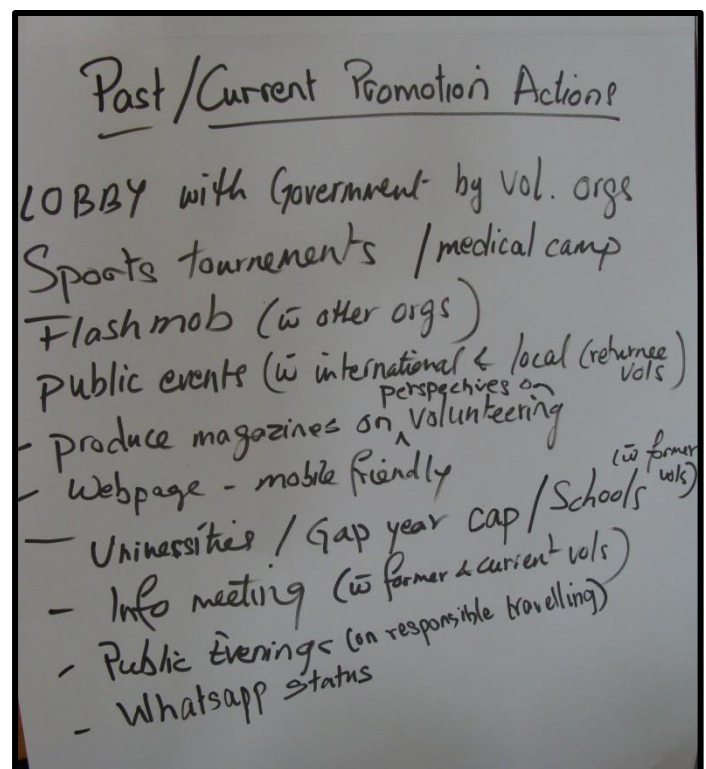 Past/Current Promotion Actions
LOBBY with Government by Vol. orgs
Sports tournements / medical camp
Flashmob (w̄ other orgs)
Public events (w̄ international & local (returnee vols)
- produce magazines on perspectives on volunteering
- Webpage - mobile friendly
- Universities / Gap year cap / Schools (w̄ former vols)
- Info meeting (w̄ former & current vols)
- Public Evenings (on responsible travelling)
- Whatsapp status